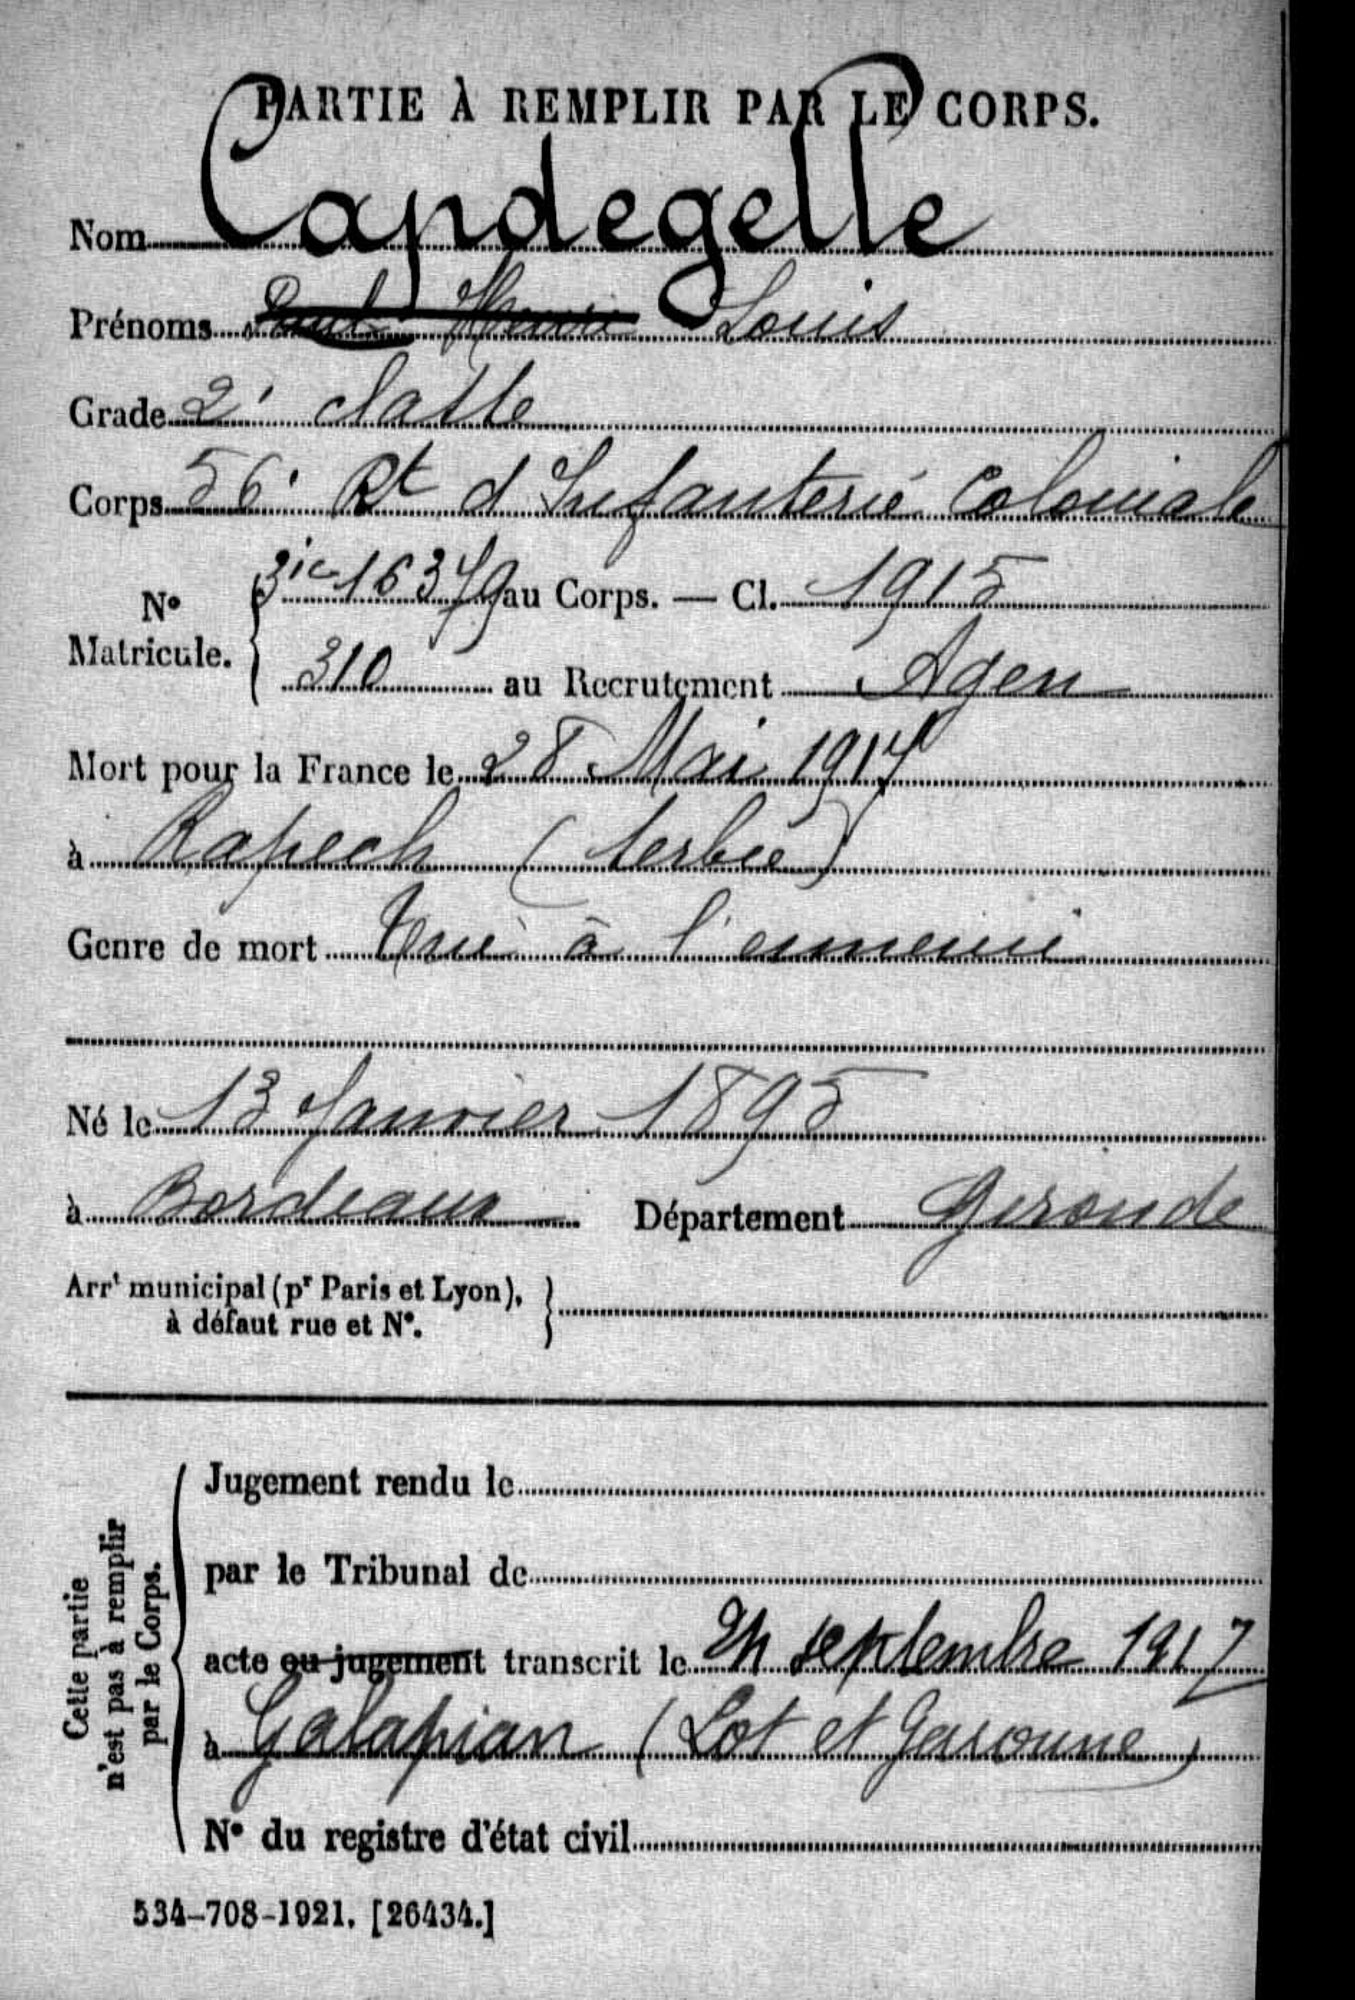 PARTIE À REMPLIR PAR LE CORPS.
Nom Capdegelle
Prénoms Paul Henri Louis
Grade 2e classe
Corps 56e Rt d'Infanterie Coloniale
No Matricule. 3ic 16379 au Corps. — Cl. 1915
310 au Recrutement Agen
Mort pour la France le 28 Mai 1917
à Rapech (Serbie)
Genre de mort Tué à l'ennemi
Né le 13 Janvier 1895
à Bordeaux Département Gironde
Arrt municipal (pr Paris et Lyon),
à défaut rue et No.
Cette partie
n'est pas à remplir
par le Corps.
Jugement rendu le
par le Tribunal de
acte ou jugement transcrit le septembre 1917
à Galapian (Lot et Garonne)
No du registre d'état civil
534-708-1921. [26434.]